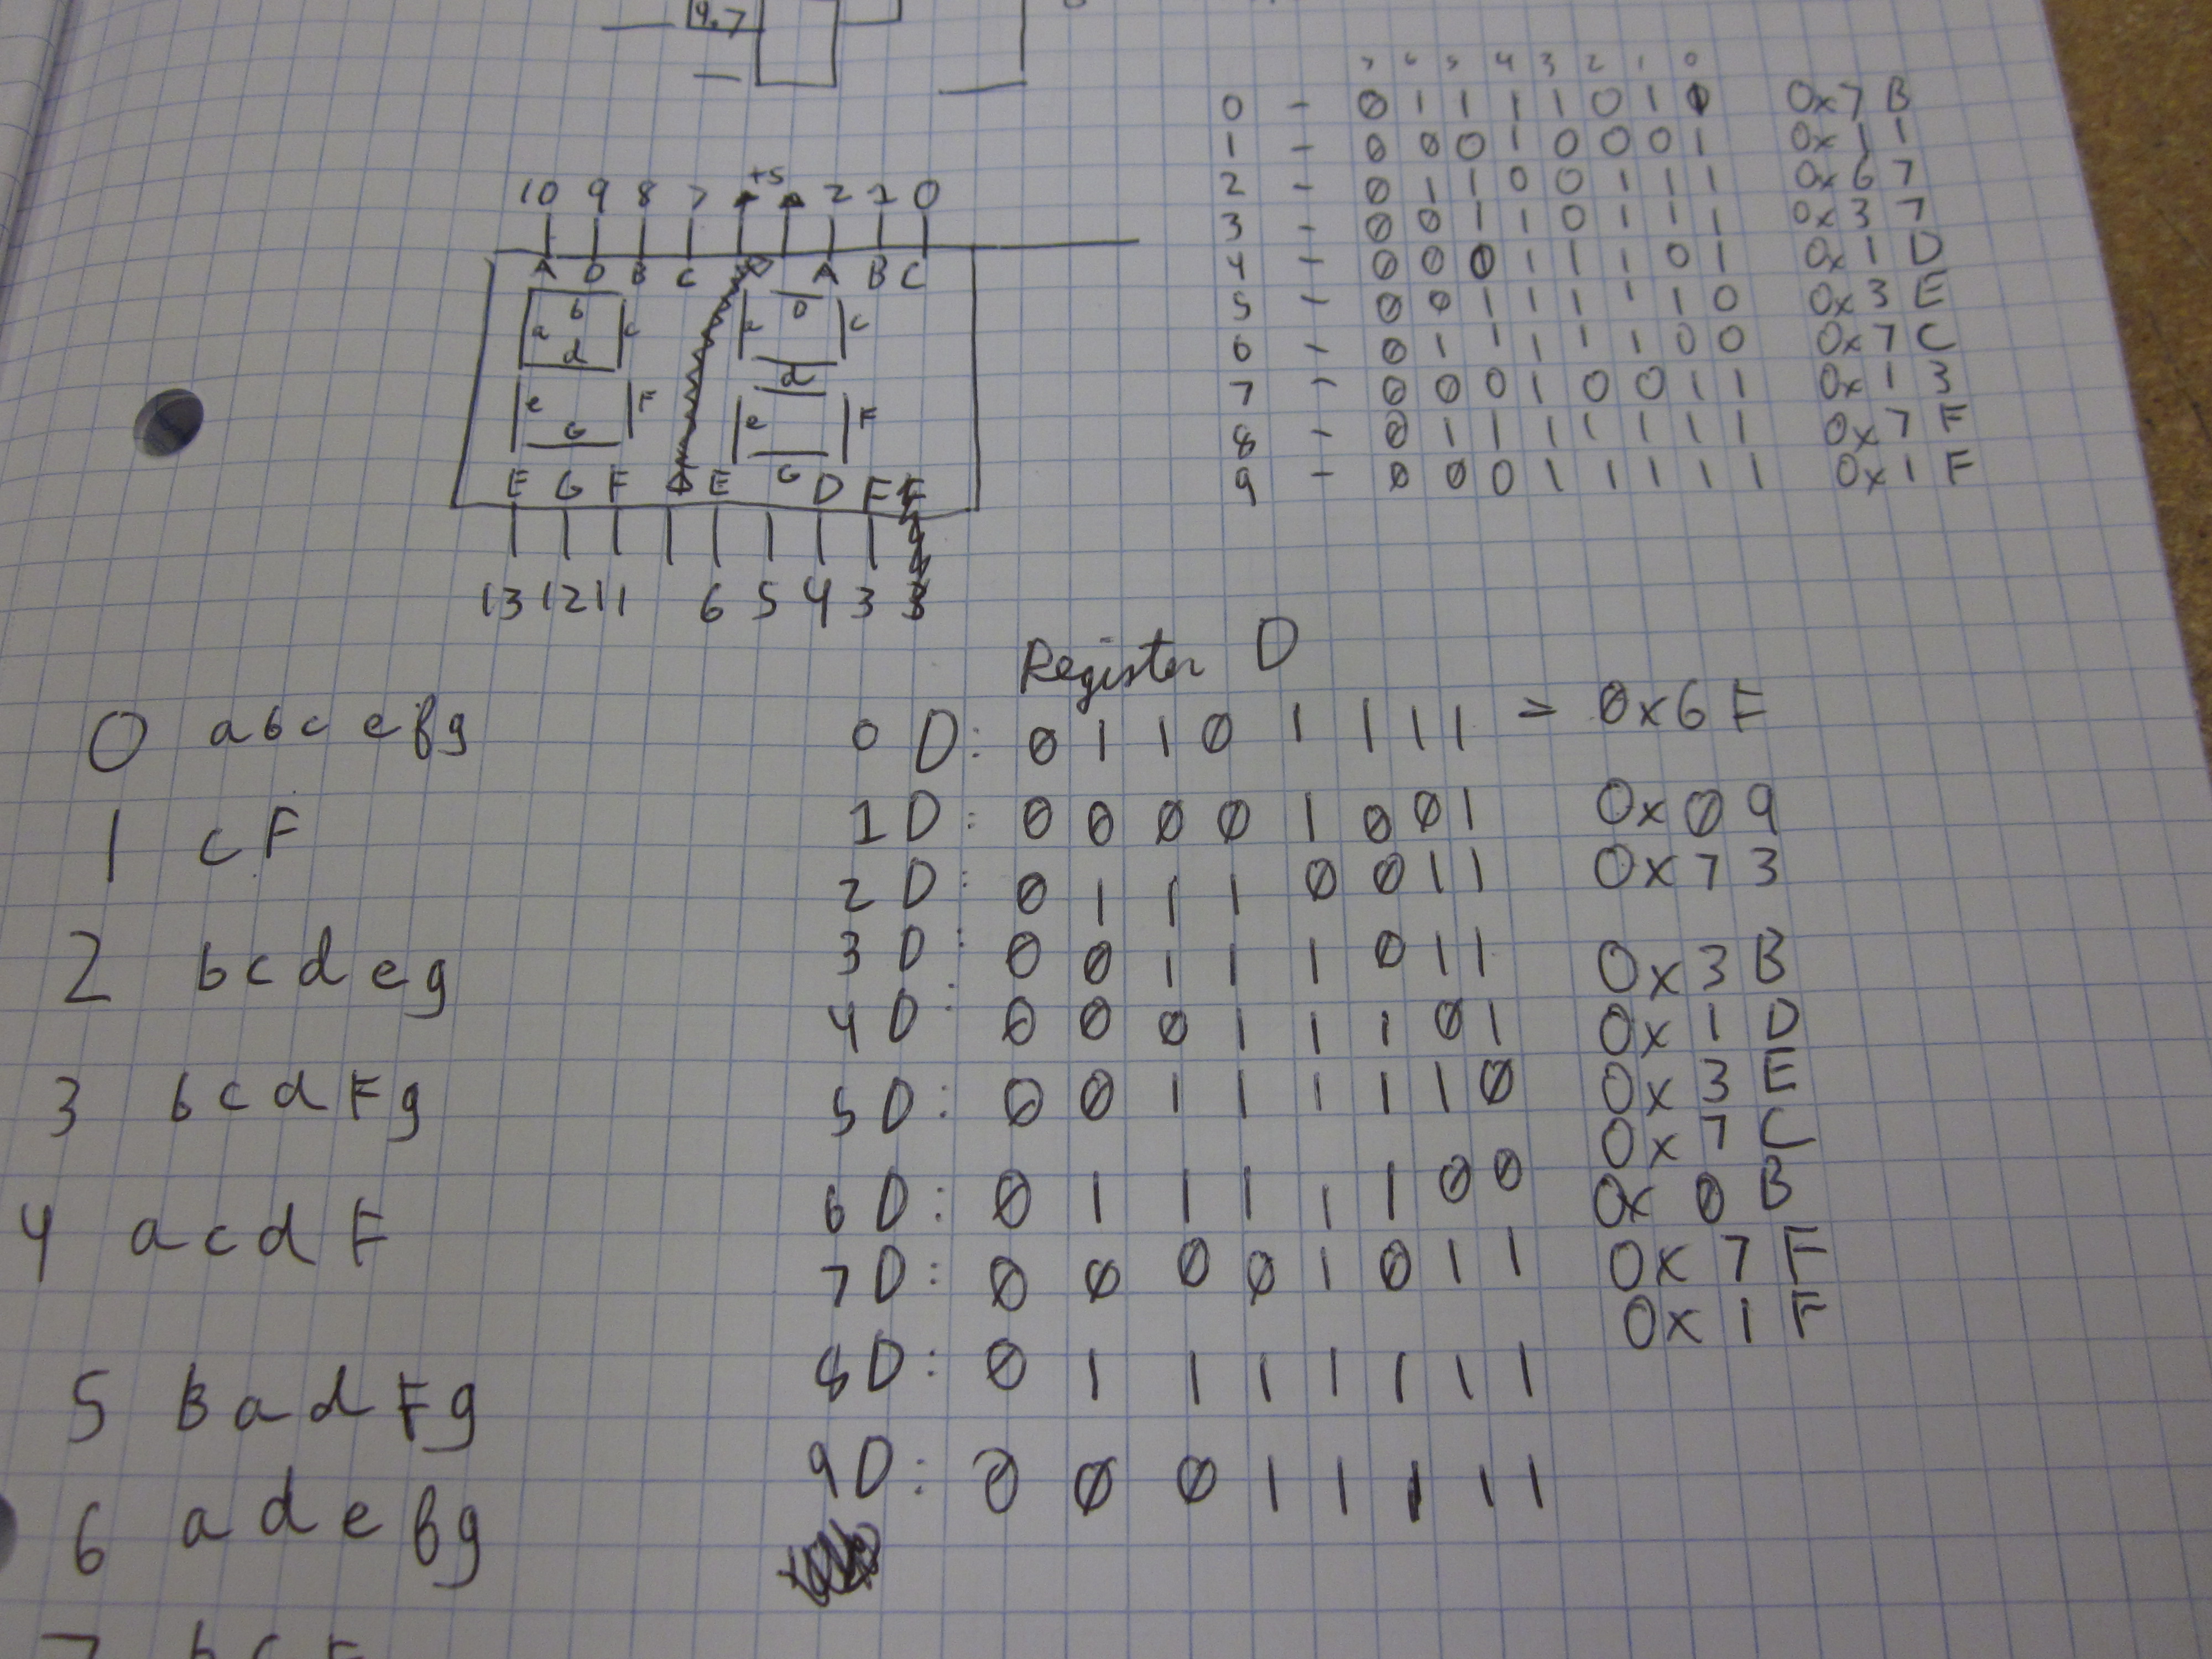 9.7
7 6 5 4 3 2 1 0
0 - 0 1 1 1 1 0 1 0x7B
1 - 0 0 0 1 0 0 0 1 0x11
2 - 0 1 1 0 0 1 1 1 0x67
3 - 0 0 1 1 0 1 1 1 0x37
4 - 0 0 0 1 1 1 0 1 0x1D
5 - 0 0 1 1 1 1 1 0 0x3E
6 - 0 1 1 1 1 1 0 0 0x7C
7 - 0 0 0 1 0 0 1 1 0x13
8 - 0 1 1 1 1 1 1 1 0x7F
9 - 0 0 0 1 1 1 1 1 0x1F
+5
10 9 8 7 2 1 0
A D B C A B C
b
a c c
d d
e F e F
G G
E G F E D F
13 12 11 6 5 4 3
Register D
0 a b c e f g
1 c F
2 b c d e g
3 b c d F g
4 a c d F
5 B a d F g
6 a d e f g
7 b c F
0 D: 0 1 1 0 1 1 1 1 = 0x6F
1 D: 0 0 0 0 1 0 0 1 0x09
2 D: 0 1 1 1 0 0 1 1 0x73
3 D: 0 0 1 1 1 0 1 1 0x3B
4 D: 0 0 0 1 1 1 0 1 0x1D
5 D: 0 0 1 1 1 1 1 0 0x3E
6 D: 0 1 1 1 1 1 0 0 0x7C
7 D: 0 0 0 0 1 0 1 1 0x0B
8 D: 0 1 1 1 1 1 1 1 0x7F
9 D: 0 0 0 1 1 1 1 1 0x1F